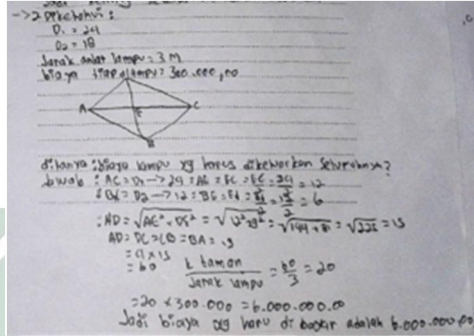 → 2 Diketahui :
D₁ = 24
D₂ = 18
Jarak antar lampu = 3 M
biaya tiap lampu = 300.000,00
A
E
C
B
ditanya : biaya lampu yg harus dikeluarkan seluruhnya?
Jawab : AC = D₁ → 24 = AE = EC = 24/2 = 12
: AD = √AE² + DE² = √12² + 9² = √144 + 81 = √225 = 15
AD = DC = CB = BA = 15
= 4 x 15
= 60
k taman / Jarak lampu = 60/3 = 20
= 20 x 300.000 = 6.000.000.00
Jadi biaya yg haru di bayar adalah 6.000.000.00